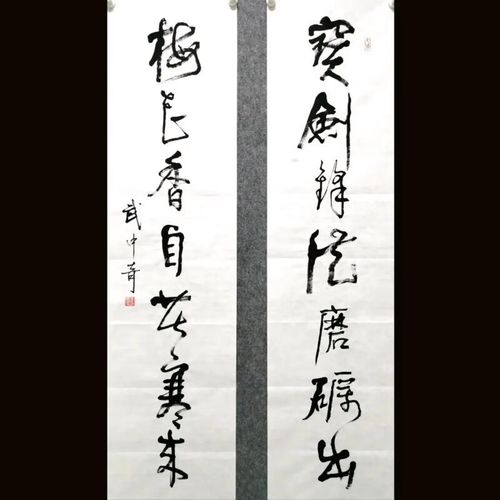 寶劍鋒從磨礪出
梅花香自苦寒來
武中奇